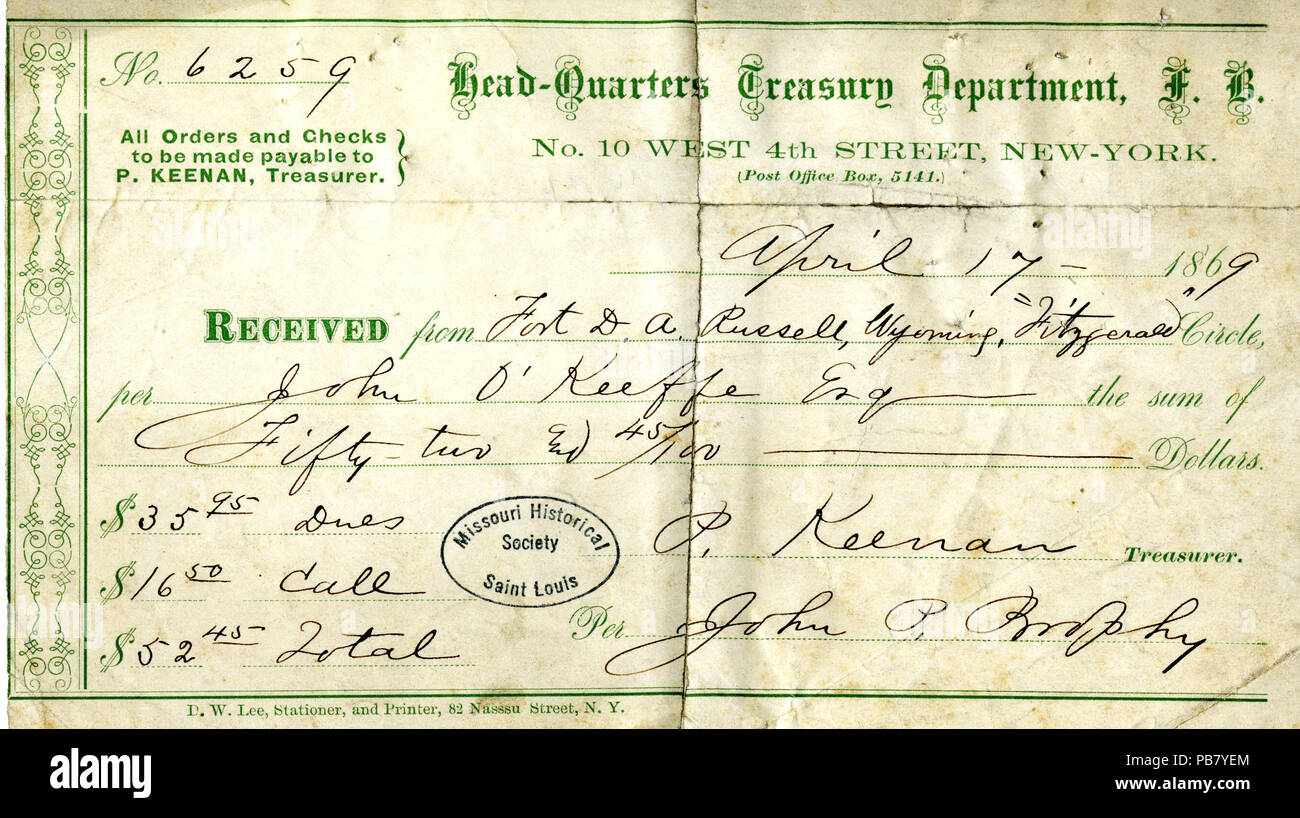 No. 6259
Head-Quarters Treasury Department, F. B.
All Orders and Checks
to be made payable to
P. KEENAN, Treasurer.
No. 10 WEST 4th STREET, NEW-YORK.
(Post Office Box, 5141.)
April 17 - 1869
RECEIVED from Fort D. A. Russell, Wyoming, "Fitzgerald" Circle,
per John O'Keeffe Esq the sum of
Fifty-two &d 45/100 Dollars.
$35 95 Dues
P. Keenan Treasurer.
$16 50 Call
$52 45 Total
Per John P. Brophy
Missouri Historical
Society
Saint Louis
D. W. Lee, Stationer, and Printer, 82 Nasssu Street, N. Y.
alamy
alamy
Image ID: PB7YEM
www.alamy.com